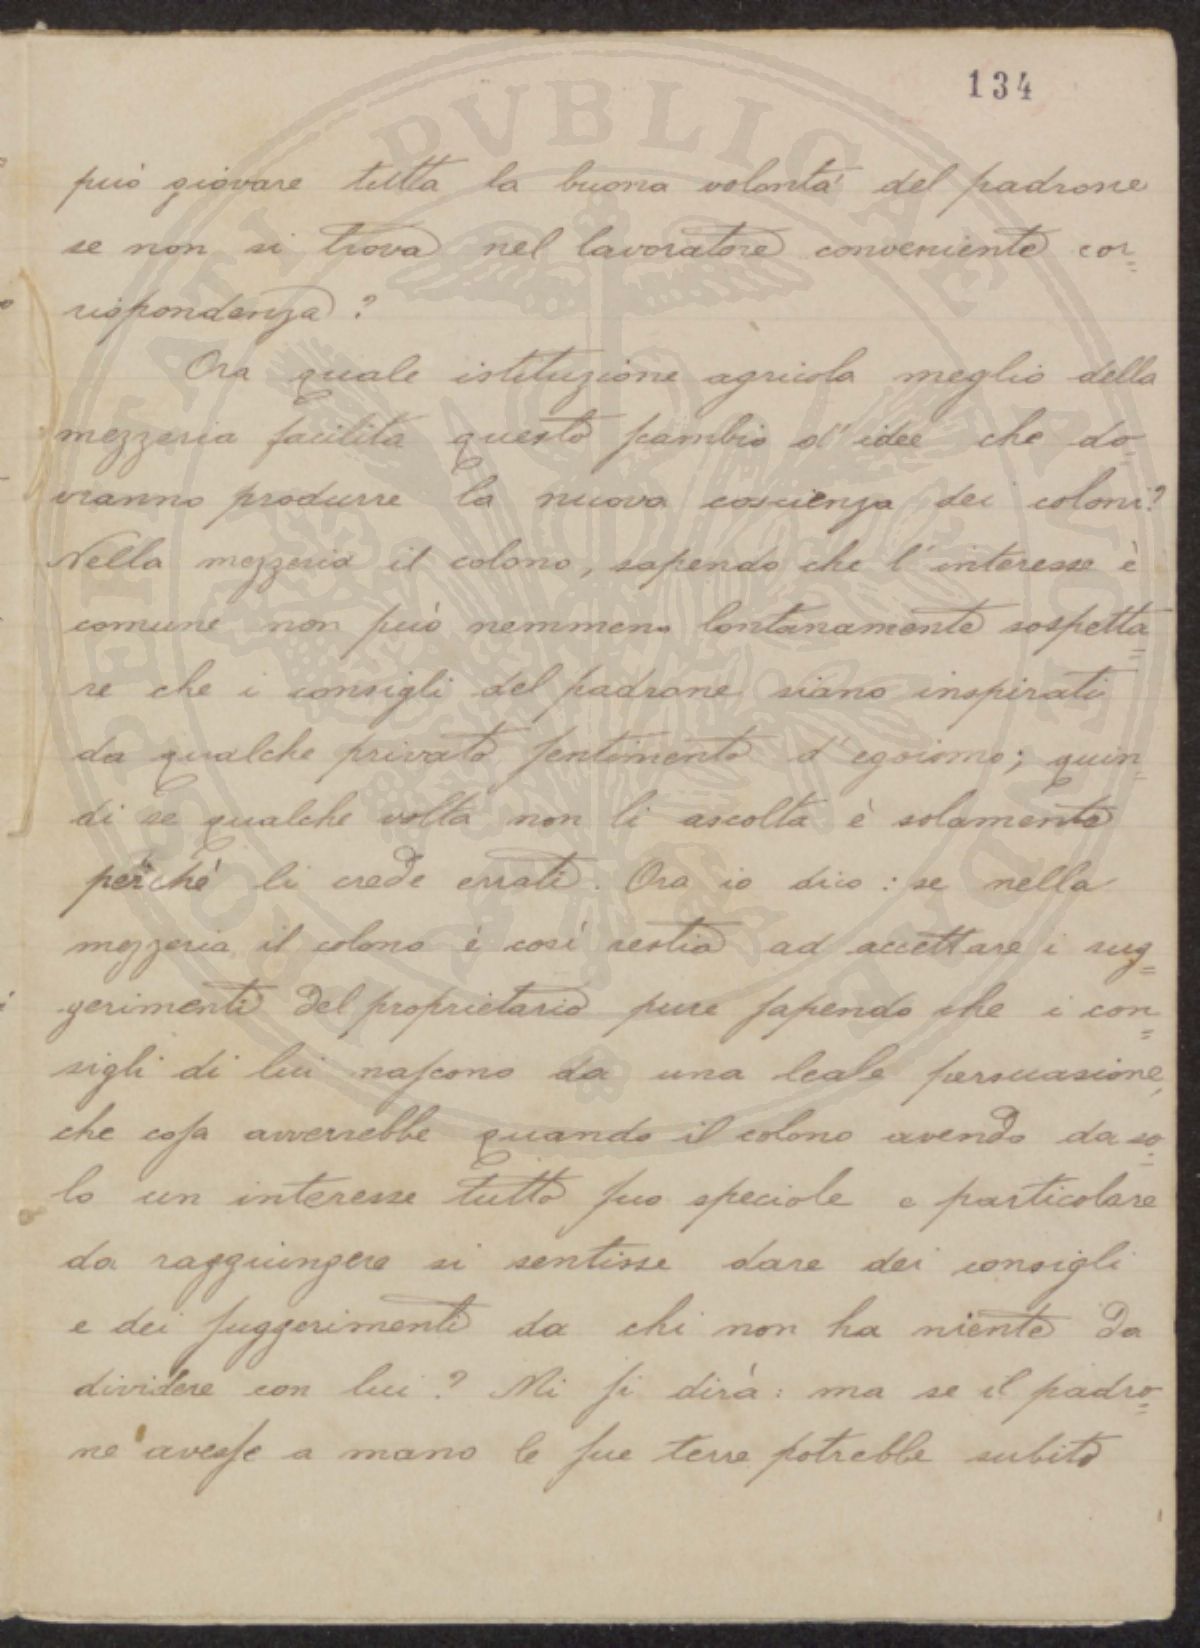 134
può giovare tutta la buona volontà del padrone
se non si trova nel lavoratore conveniente cor=
rispondenza?
Ora quale istituzione agricola meglio della
mezzeria facilita questo scambio d'idee che do=
vranno produrre la nuova coscienza dei coloni?
Nella mezzeria il colono, sapendo che l'interesse è
comune non può nemmeno lontanamente sospetta=
re che i consigli del padrone siano inspirati
da qualche privato sentimento d'egoismo; quin=
di se qualche volta non li ascolta è solamente
perchè li crede errati. Ora io dico: se nella
mezzeria il colono è così restio ad accettare i sug=
gerimenti del proprietario pure sapendo che i con=
sigli di lui nascono da una leale persuasione,
che cosa avverrebbe quando il colono avendo da so=
lo un interesse tutto suo speciale e particolare
da raggiungere si sentisse dare dei consigli
e dei suggerimenti da chi non ha niente da
dividere con lui? Mi si dirà: ma se il padro=
ne avesse a mano le sue terre potrebbe subito
PVBLICAE